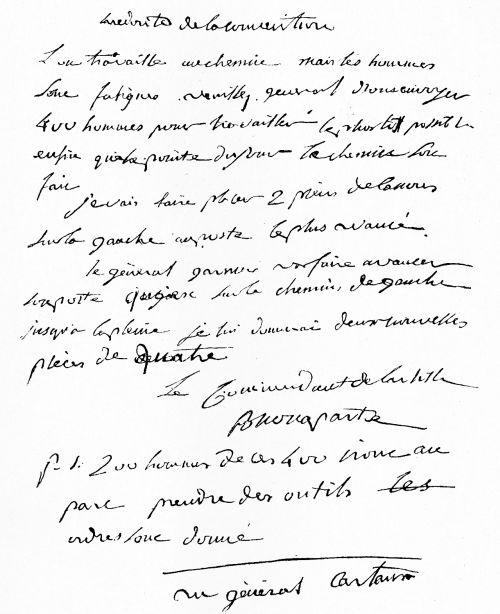 batterie de la convention
L'on travaille au chemin mais les hommes
sont fatigués veuillez general nous envoyer
400 hommes pour travailler le plus tôt possible
enfin qu'a la pointe du jour le chemin soit
fait
je vais faire placer 2 pieces de canons
sur la gauche au poste le plus avancé.
le général garnier va faire avancer
son poste jusque sur le chemin de gauche
jusqu'a la pleine je lui donnerai deux nouvelles
pieces de quatre
Le Commandant de l'artille
Buonaparte
p. s. 200 hommes de ces 400 iront au
parc prendre des outils les
ordres sont donné
au général Cartaux